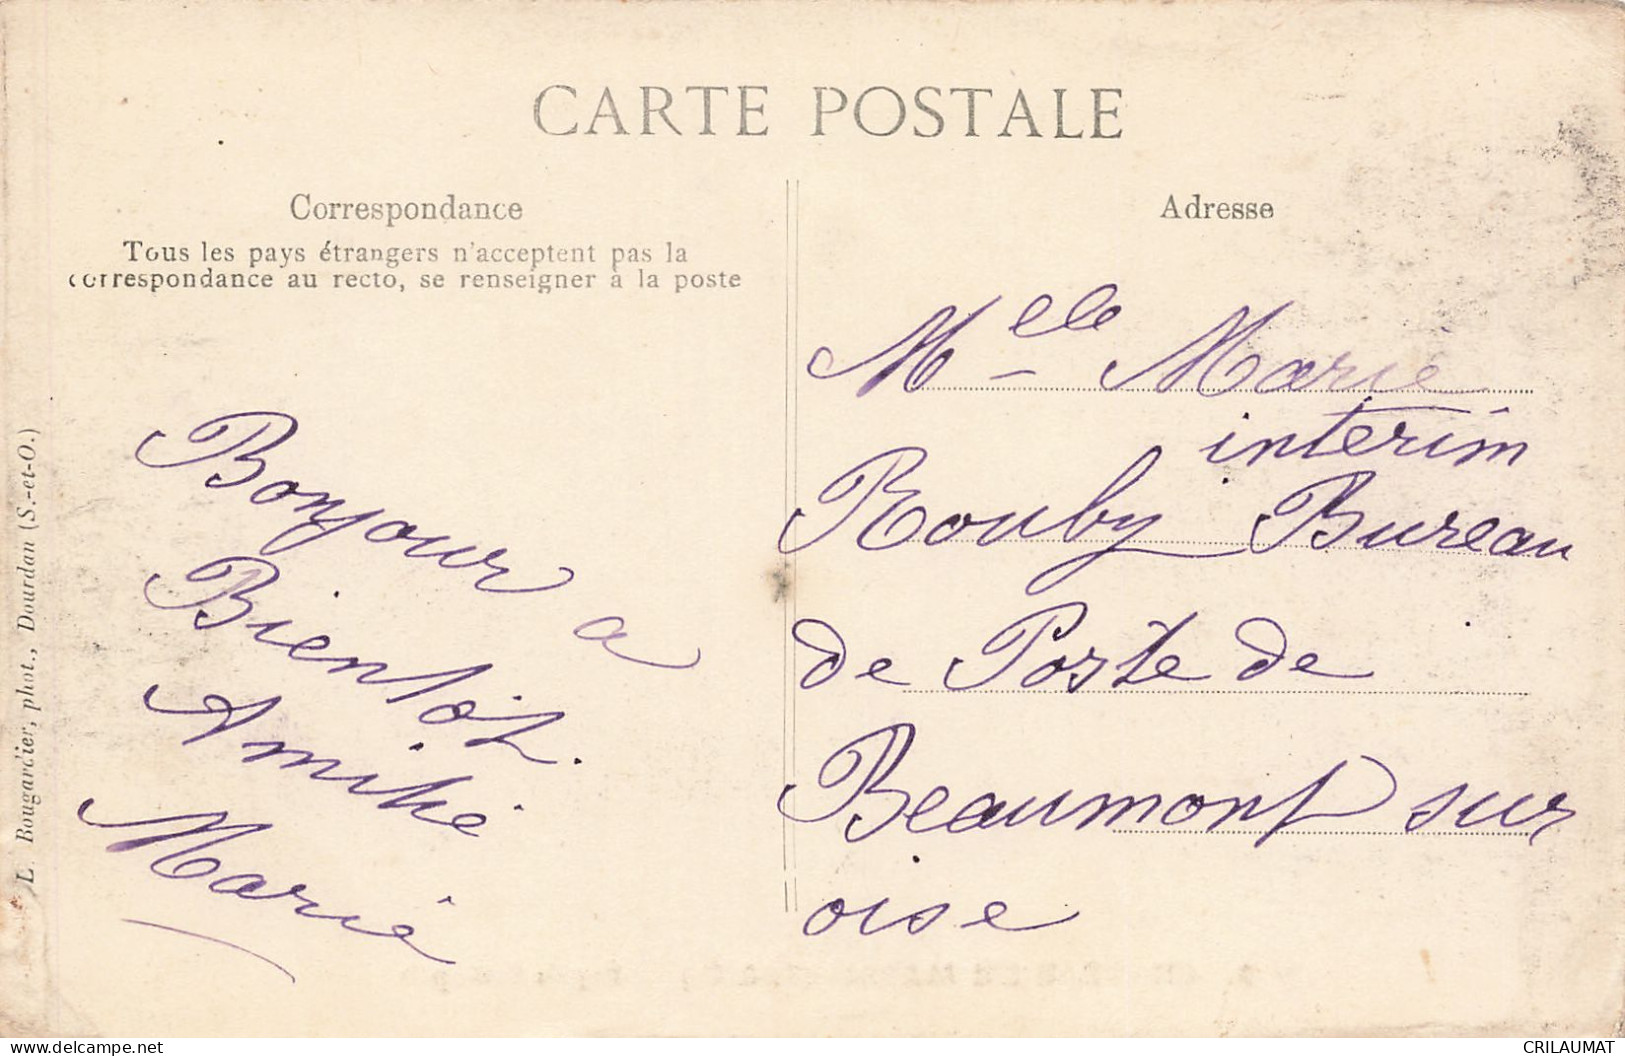 CARTE POSTALE
Correspondance
Tous les pays étrangers n'acceptent pas la
correspondance au recto, se renseigner à la poste
Bonjour a
Bientôt.
Amitié
Marie
L. Bougardier, phot., Dourdan (S.-et-O.)
Adresse
Melle Marie
interim
Rouby Bureau
de Poste de
Beaumont sur
oise
delcampe.net
CRILAUMAT